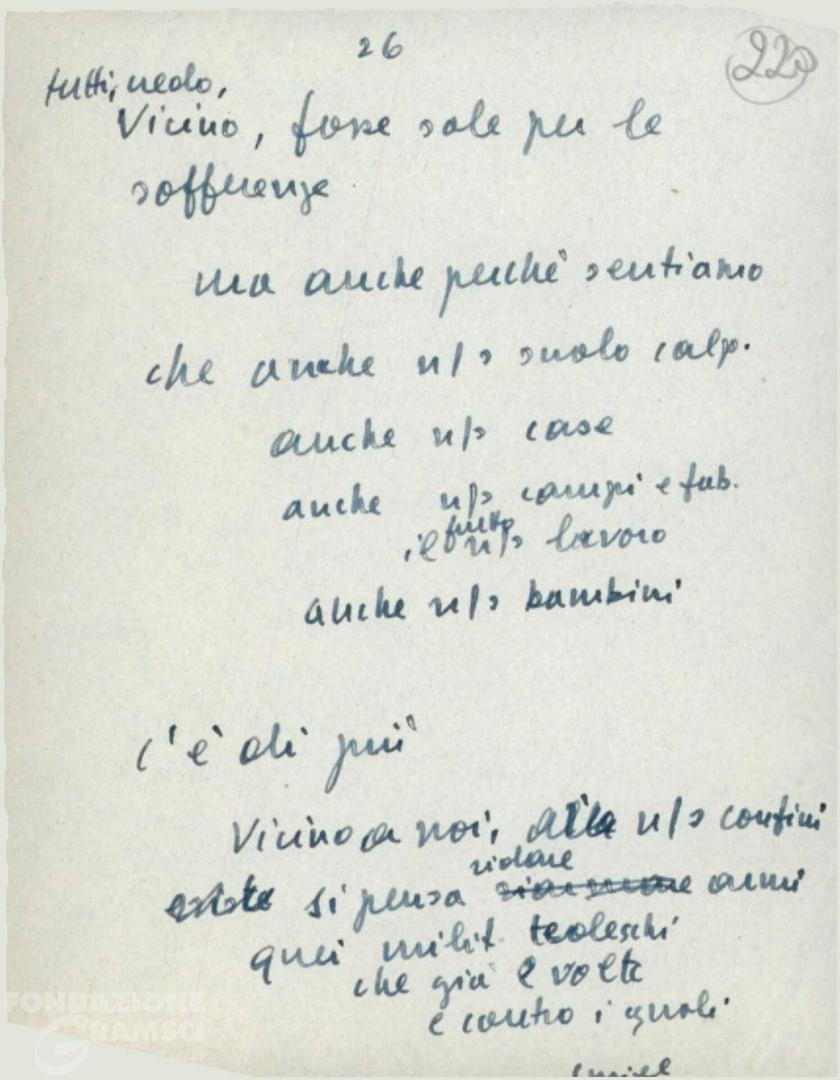 26
220
tutti, vedo,
Vicino, forse solo per le
sofferenze
ma anche perché sentiamo
che anche n/s suolo calp.
anche n/s case
anche n/s campi e fab.
tutto
, e n/s lavoro
anche n/s bambini
c'è di più
Vicino a noi, alla n/s confini
si pensa ridare armi
quei milit. tedeschi
che già 2 volte
e contro i quali
FONDAZIONE
GRAMSCI